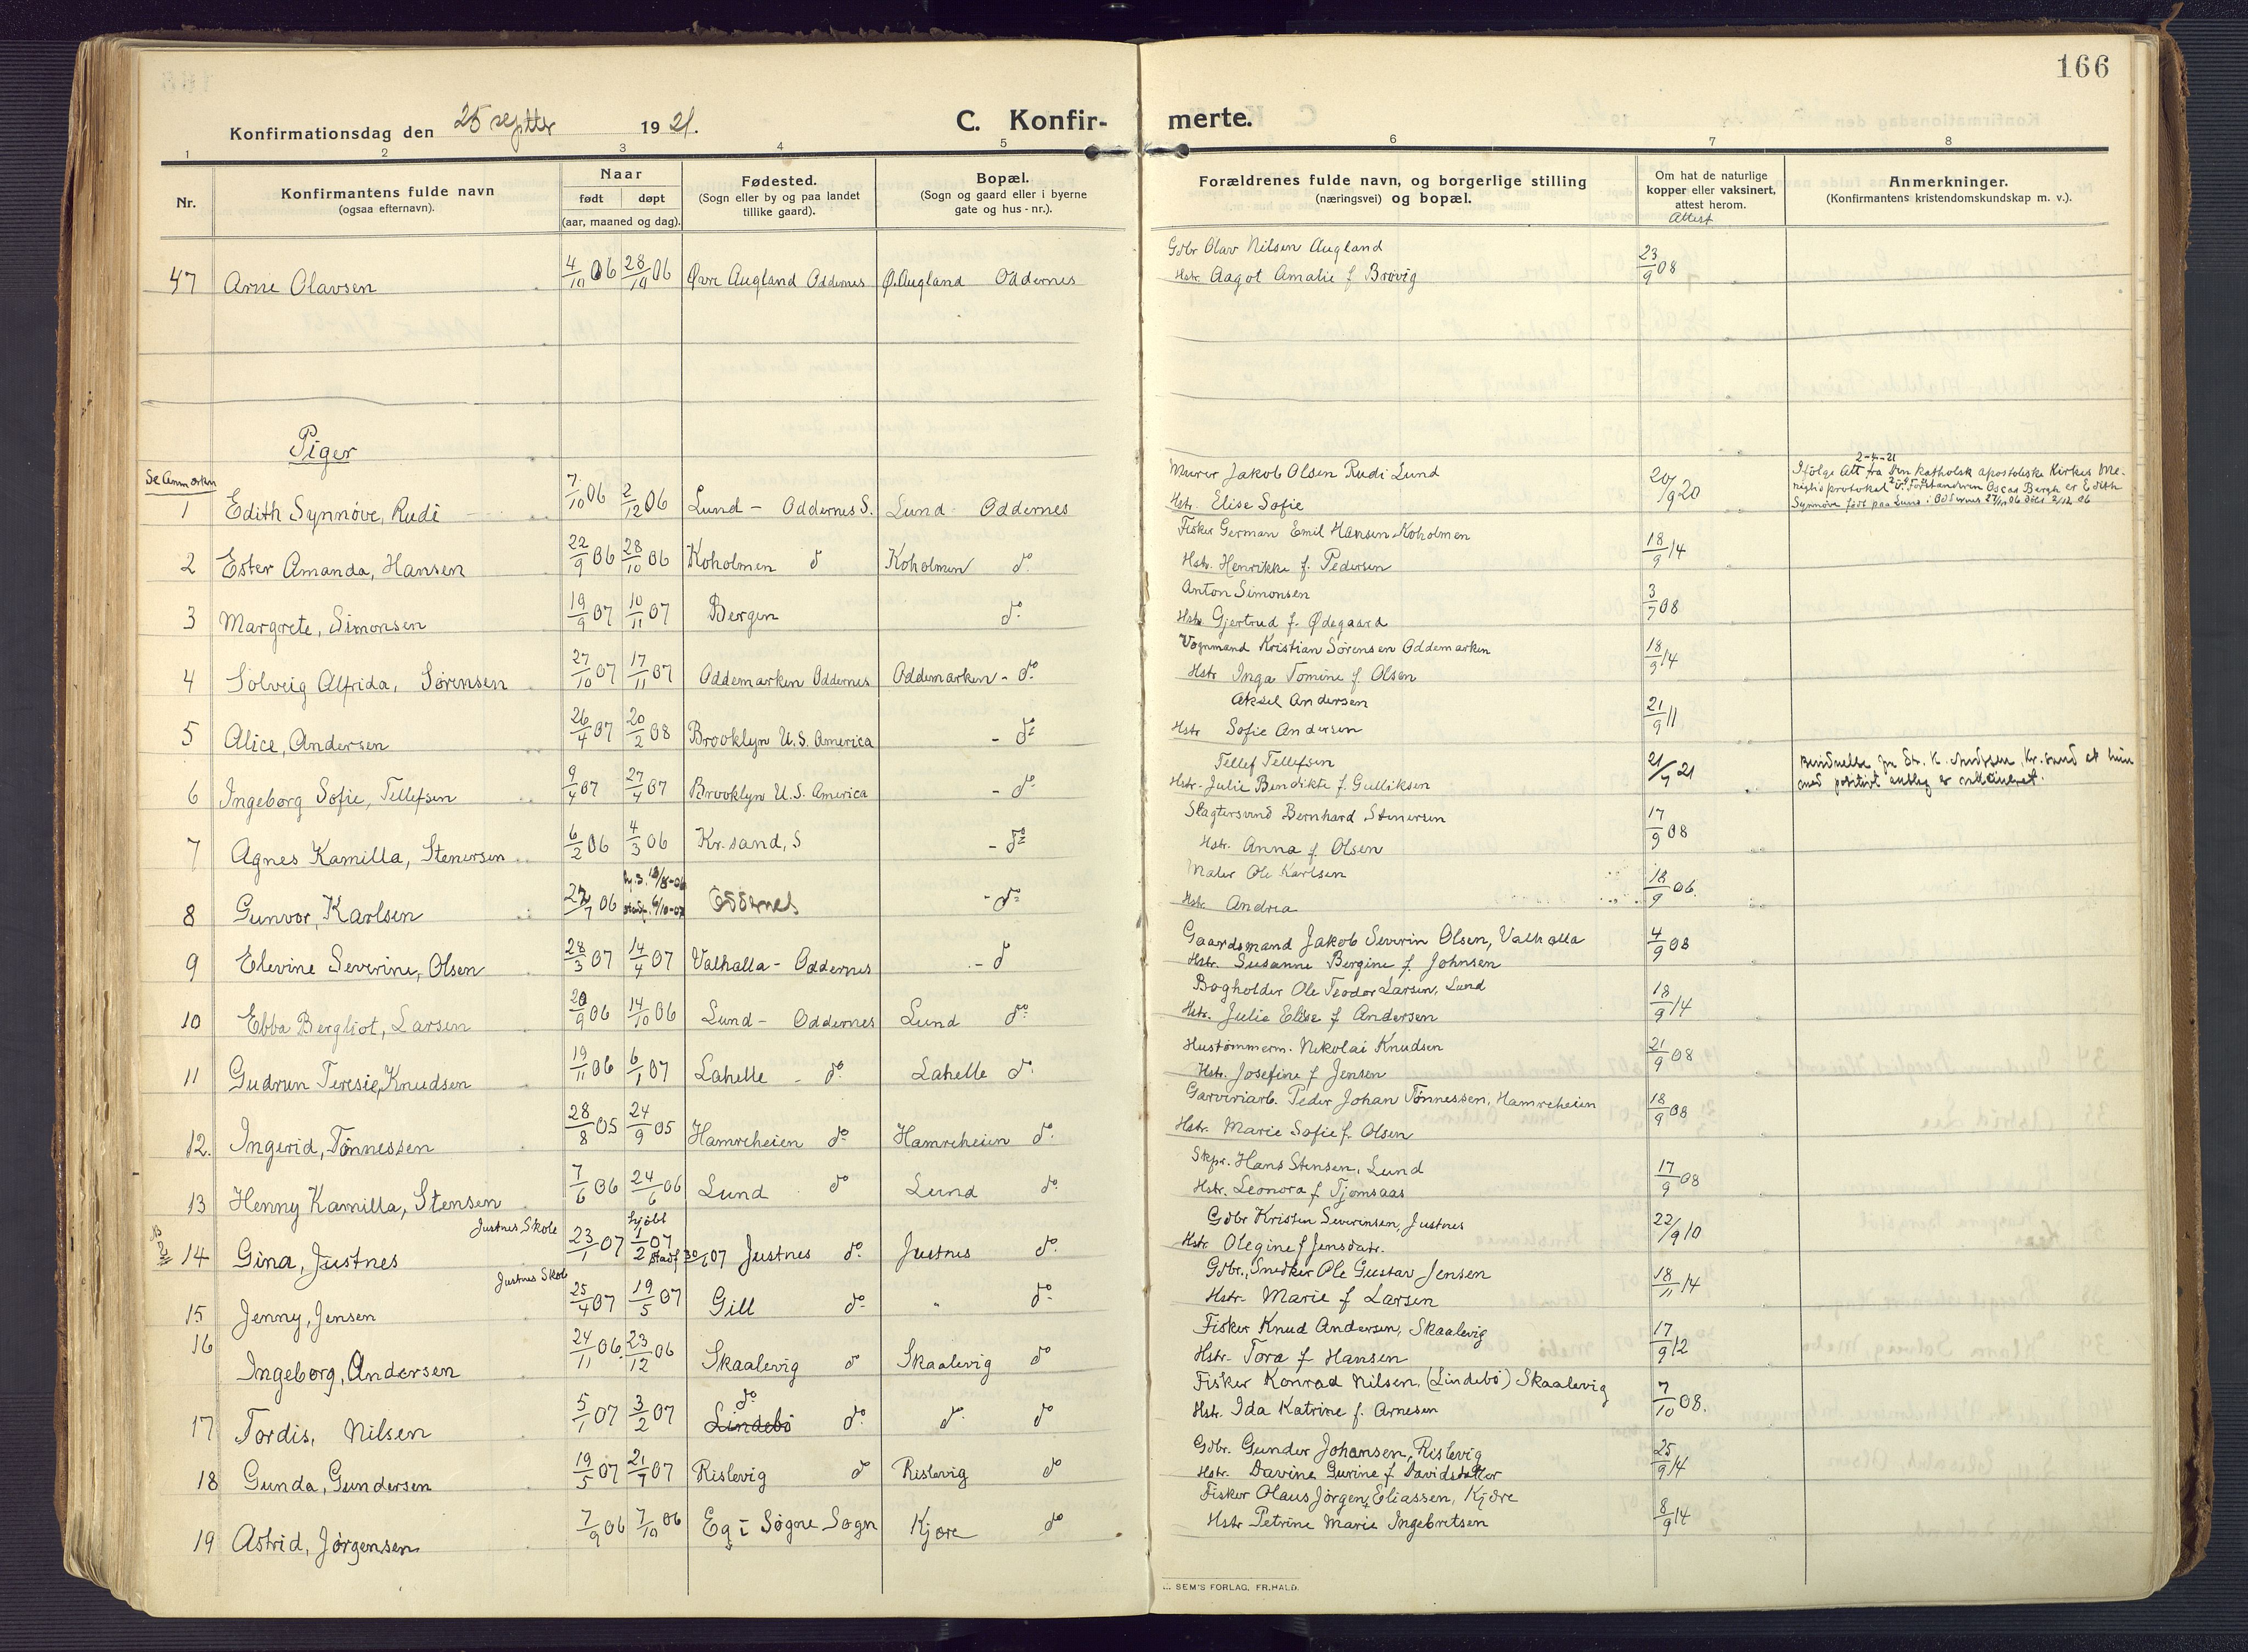 166
Konfirmationsdag den 25 septbr 1921.
C. Konfir- merte.
1 2 3 4 5 6 7 8
Nr.
Konfirmantens fulde navn
(ogsaa efternavn).
Naar
født døpt
(aar, maaned og dag).
Fødested.
(Sogn eller by og paa landet
tillike gaard).
Bopæl.
(Sogn og gaard eller i byerne
gate og hus-nr.).
Forældrenes fulde navn, og borgerlige stilling
(næringsvei) og bopæl.
Om hat de naturlige
kopper eller vaksinert,
attest herom.
Attest
Anmerkninger.
(Konfirmantens kristendomskundskap m. v.).
47 Arne Olavsen 4/10 06 28/10 06 Øvre Augland Oddernes Ø. Augland Oddernes
Gdbr Olav Nilsen Augland
Hstr. Aagot Amalie f Brøvig 23/9 08
Piger
Se Anmerkn
1 Edith Synnöve, Rudi 7/10 06 2/12 06 Lund - Oddernes S. Lund Oddernes
Murer Jakob Olsen Rudi Lund
Hstr. Elise Sofie 20/9 20
2-4-21
Ifölge Att fra den katholsk apostoliske Kirkes Me-
nigh.protokol v. Forstanderen Oscar Bergh er Edith
Synnöve födt paa Lund i Oddernes 27/10 06 döbt 2/12 06
2 Ester Amanda, Hansen 22/9 06 28/10 06 Koholmen do Koholmen do
Fisker German Emil Hansen Koholmen
Hstr. Henrikke f. Pedersen 18/9 14
3 Margrete, Simonsen 19/9 07 10/11 07 Bergen do
Anton Simonsen
Hstr Gjertrud f. Ødegaard 3/7 08
4 Solveig Alfrida, Sörensen 27/10 07 17/11 07 Oddemarken Oddernes Oddemarken - do
Vognmand Kristian Sörensen Oddemarken
Hstr Inga Tomine f. Olsen 18/9 14
5 Alice, Andersen 26/4 07 20/2 08 Brooklyn U.S. America - do
Aksel Andersen
Hstr Sofie Andersen 21/9 11
6 Ingeborg Sofie, Tellefsen 9/4 07 27/4 07 Brooklyn U.S. America - do
Tellef Tellefsen
Hstr. Julie Bendikte f. Gulliksen 21/9 21
Bevidnelse fra Dr. K. Andersen, Kr.sand at hun
med positivt anslag er vaksineret.
7 Agnes Kamilla, Stenersen 6/2 06 4/3 06 Kr. sand, S - do
Slagtersvend Bernhard Stenersen
Hstr. Anna f. Olsen 17/9 08
8 Gunvor, Karlsen 27/7 06 Oddernes - do
Maler Ole Karlsen
Hstr. Andrea 18/9 06
9 Elevine Severine, Olsen 28/3 07 14/4 07 Valhalla - Oddernes - do
Gaardsmand Jakob Severin Olsen, Valhalla
Hstr. Susanne Bergine f. Johnsen 4/9 08
10 Ebba Bergliot, Larsen 20/9 06 14/10 06 Lund - Oddernes Lund do
Bogholder Ole Teodor Larsen, Lund
Hstr. Julie Elise f Andersen 18/9 14
11 Gudrun Teresie, Knudsen 19/11 06 6/1 07 Lahelle - do Lahelle do
Hustömmerm. Nikolai Knudsen
Hstr. Josefine f Jensen 21/9 08
12. Ingerid, Tönnessen 28/8 05 24/9 05 Hamreheien do Hamreheien do
Garveriarb. Peder Johan Tönnessen, Hamreheien
Hstr. Marie Sofie f. Olsen 18/9 08
13 Henny Kamilla, Stensen 7/6 06 24/6 06 Lund do Lund do
Skpr. Hans Stensen, Lund
Hstr. Leonora f Tjomsaas 17/9 08
Justnes Skole
14 Gina, Justnes 23/1 07 hjdbt 1/2 07 stadf 30/6 07 Justnes do Justnes do
Gdbr Kristen Severinsen, Justnes
Hstr. Olegine f Jensdatr. 22/9 10
Justnes Skole
15 Jenny, Jensen 25/4 07 19/5 07 Gill do " do
Gdbr., Snedker Ole Gustav Jensen
Hstr. Marie f Larsen 18/11 14
16 Ingeborg, Andersen 24/11 06 23/12 06 Skaalevig do Skaalevig do
Fisker Knud Andersen, Skaalevig
Hstr. Tora f Hansen 17/9 12
17 Tordis, Nilsen 5/1 07 3/2 07 do Lindebö do do do
Fisker Konrad Nilsen, (Lindebö) Skaalevig
Hstr. Ida Katrine f. Arnesen 7/10 08.
18 Gunda, Gundersen 19/5 07 21/7 07 Rislevig do Rislevig do
Gdbr. Gunder Johansen, Rislevig
Hstr. Davine Gurine f Davidsdatter 25/9 14
19 Astrid, Jørgensen 7/9 06 7/10 06 Eg i Søgne Sogn Kjøre do
Fisker Olaus Jörgen Eliassen, Kjöre
Hstr Petrine Marie Ingebretsen 8/9 14
SEM'S FORLAG, FR.HALD.